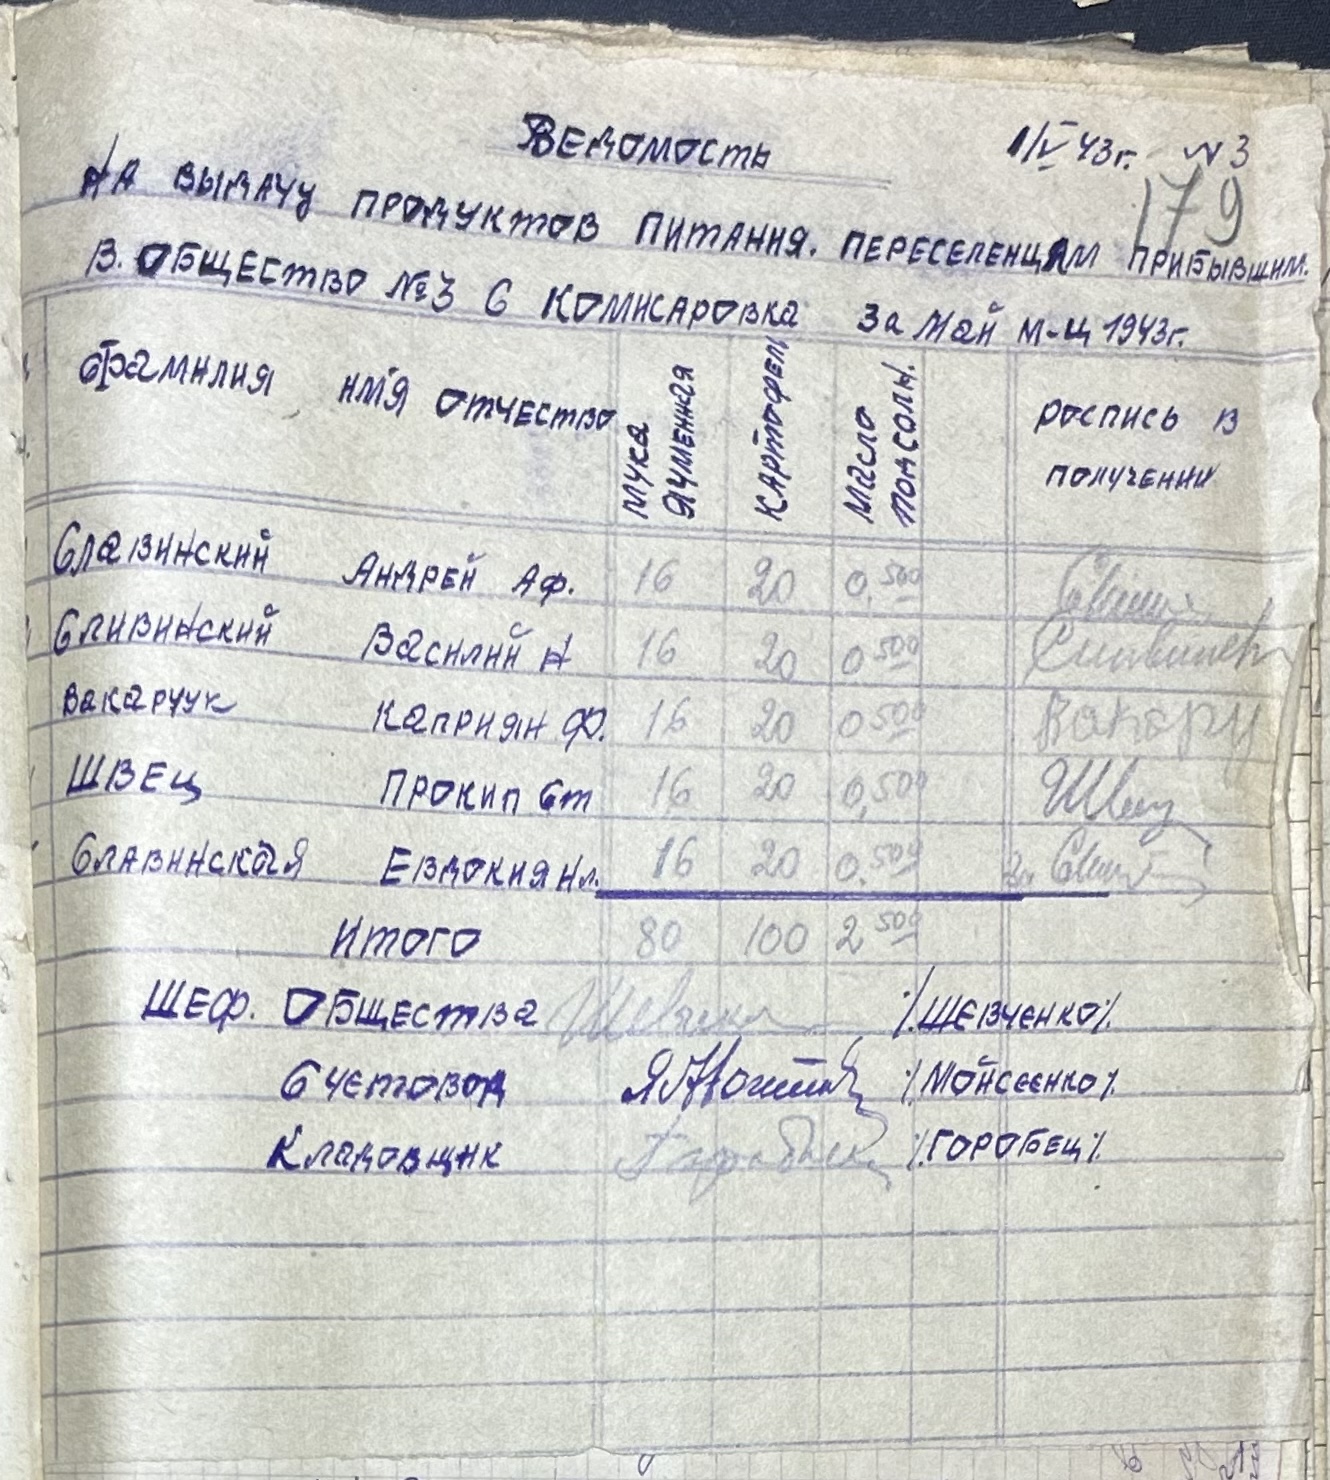 Ведомость 1/V 43г. №3
179
на выдачу продуктов питания. переселенцам прибывшим.
в. общество №3 с Комисаровка за май м-ц 1943г.
Фамилия имя отчество мука ячменная картофель масло подсолн. роспись в получении
Славинский Андрей Аф. 16 20 0,500
Сливинский Василий А 16 20 0 500 Сливинск
Вакарчук Каприян Ф. 16 20 0 500 Вакарч
Швец Прокип Ст 16 20 0,500 Швец
Славинская Евдокия Ил. 16 20 0.500
Итого 80 100 2 500
Шеф. общества Шевченко /.Шевченко/.
Счетовод /.Мойсеенко/.
Кладовщик /.Горобец/.